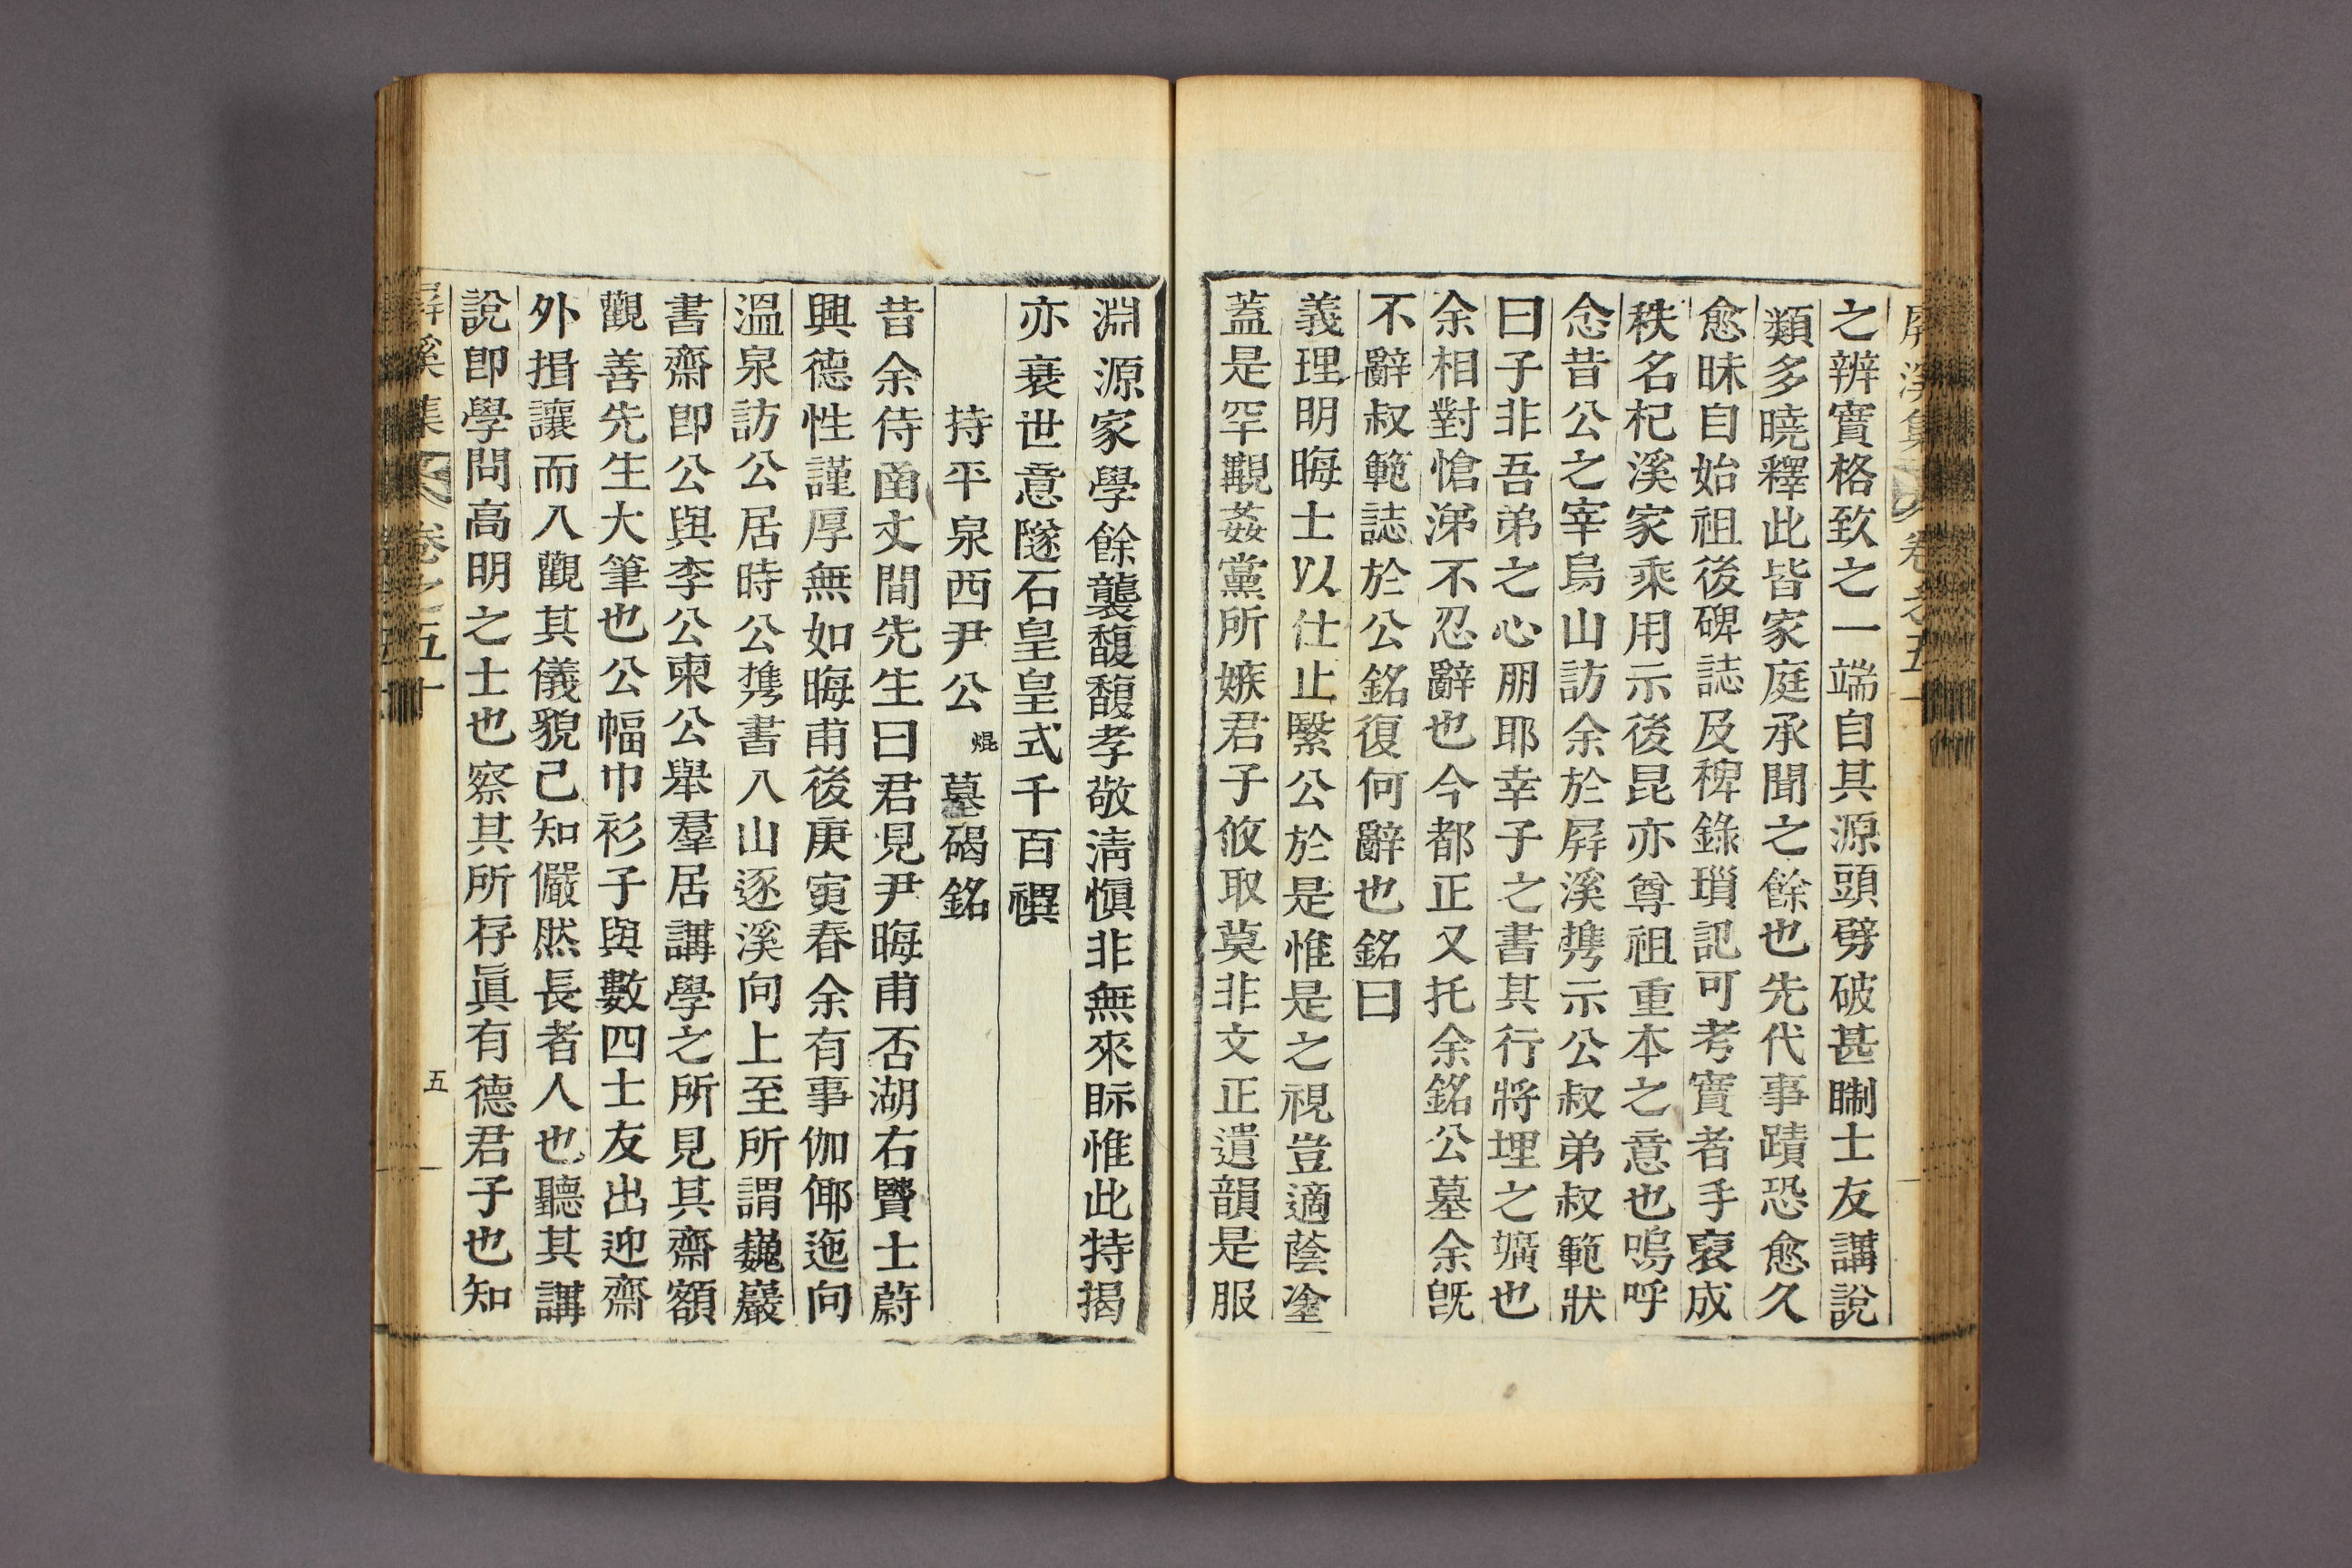 屛溪集 卷之五十
之辨實格致之一端自其源頭劈破甚矙士友講說
類多曉釋此皆家庭承聞之餘也先代事蹟恐愈久
愈昧自始祖後碑誌及稗錄瑣記可考實者手裒成
秩名杞溪家乘用示後昆亦尊祖重本之意也嗚呼
念昔公之宰烏山訪余於屛溪携示公叔弟叔範狀
曰子非吾弟之心朋耶幸子之書其行將埋之壙也
余相對愴涕不忍辭也今都正又托余銘公墓余旣
不辭叔範誌於公銘復何辭也銘曰
義理明晦士以仕止緊公於是惟是之視豈適蔭塗
蓋是罕覯姦黨所嫉君子攸取莫非文正遺韻是服
淵源家學餘襲馥馥孝敬淸愼非無來眎惟此特揭
亦衰世意隧石皇皇式千百禩
持平泉西尹公 焜 墓碣銘
昔余侍凾丈間先生曰君見尹晦甫否湖右賢士蔚
興德性謹厚無如晦甫後庚寅春余有事伽倻迤向
溫泉訪公居時公携書入山逐溪向上至所謂巍巖
書齋卽公與李公柬公舉羣居講學之所見其齋額
觀善先生大筆也公幅巾衫子與數四士友出迎齋
外揖讓而入觀其儀貌已知儼然長者人也聽其講
說卽學問高明之士也察其所存眞有德君子也知
屛溪集 卷之五十 五